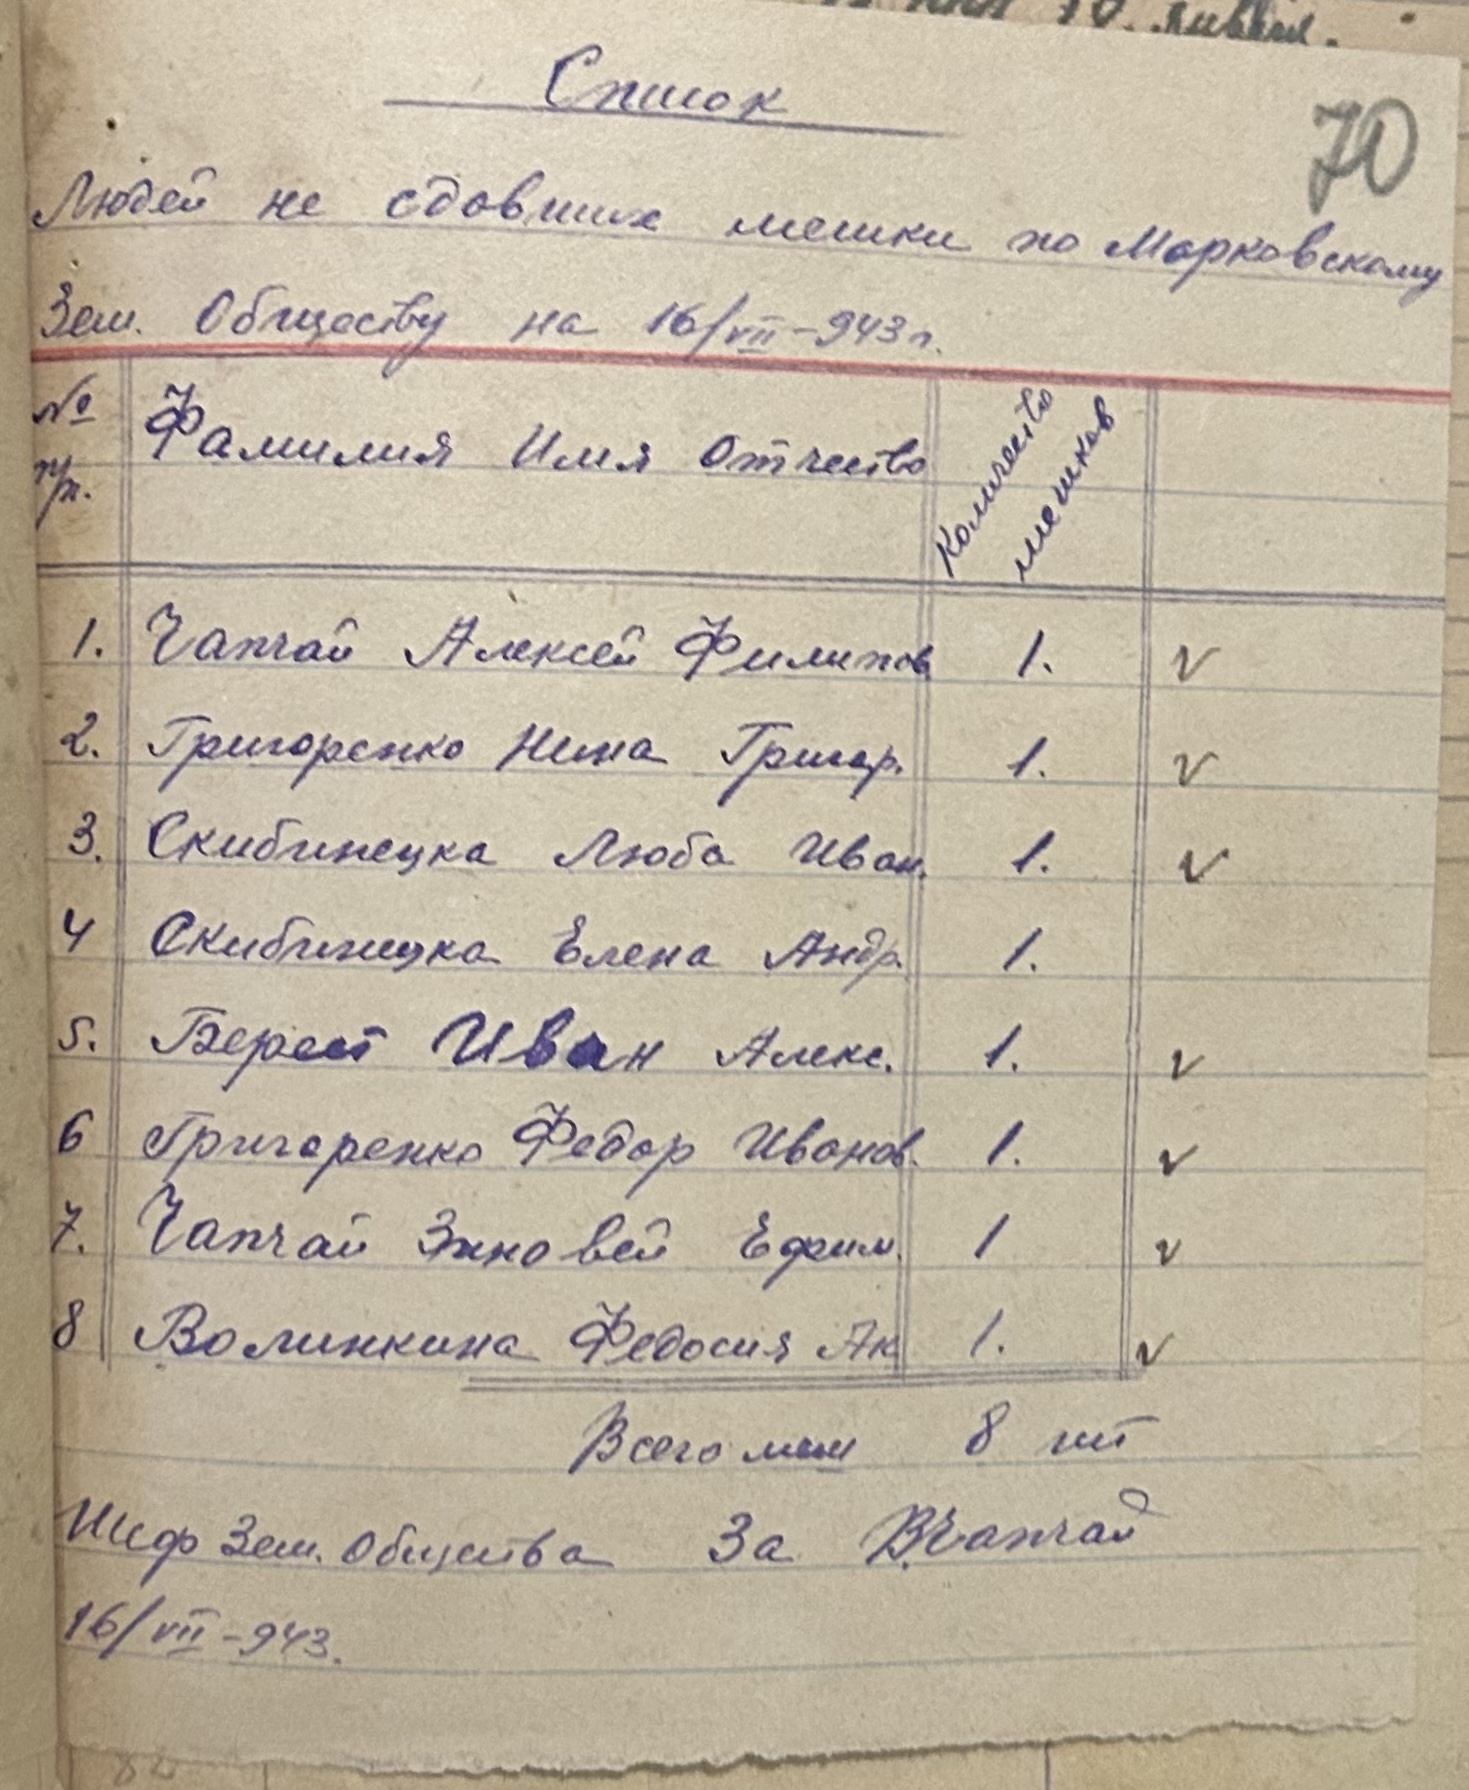 70
Список
Людей не сдовших мешки по Морковскому
Зем. Обществу на 16/VII-943 г.
№ п/п. Фамилия Имя Отчество Количество мешков
1. Чапчай Алексей Филипов 1. v
2. Григоренко Нина Григор. 1. v
3. Скибинецка Люба Иван. 1. v
4 Скибинецка Елена Андр. 1.
5. Берест Иван Алекс. 1. v
6 Григоренко Федор Иванов. 1. v
7. Чапчай Зиновей Ефим. 1 v
8 Волинкина Федосия Ак 1. v
Всего меш 8 шт
Шеф Зем. Общества За В.Чапчай
16/VII-943.